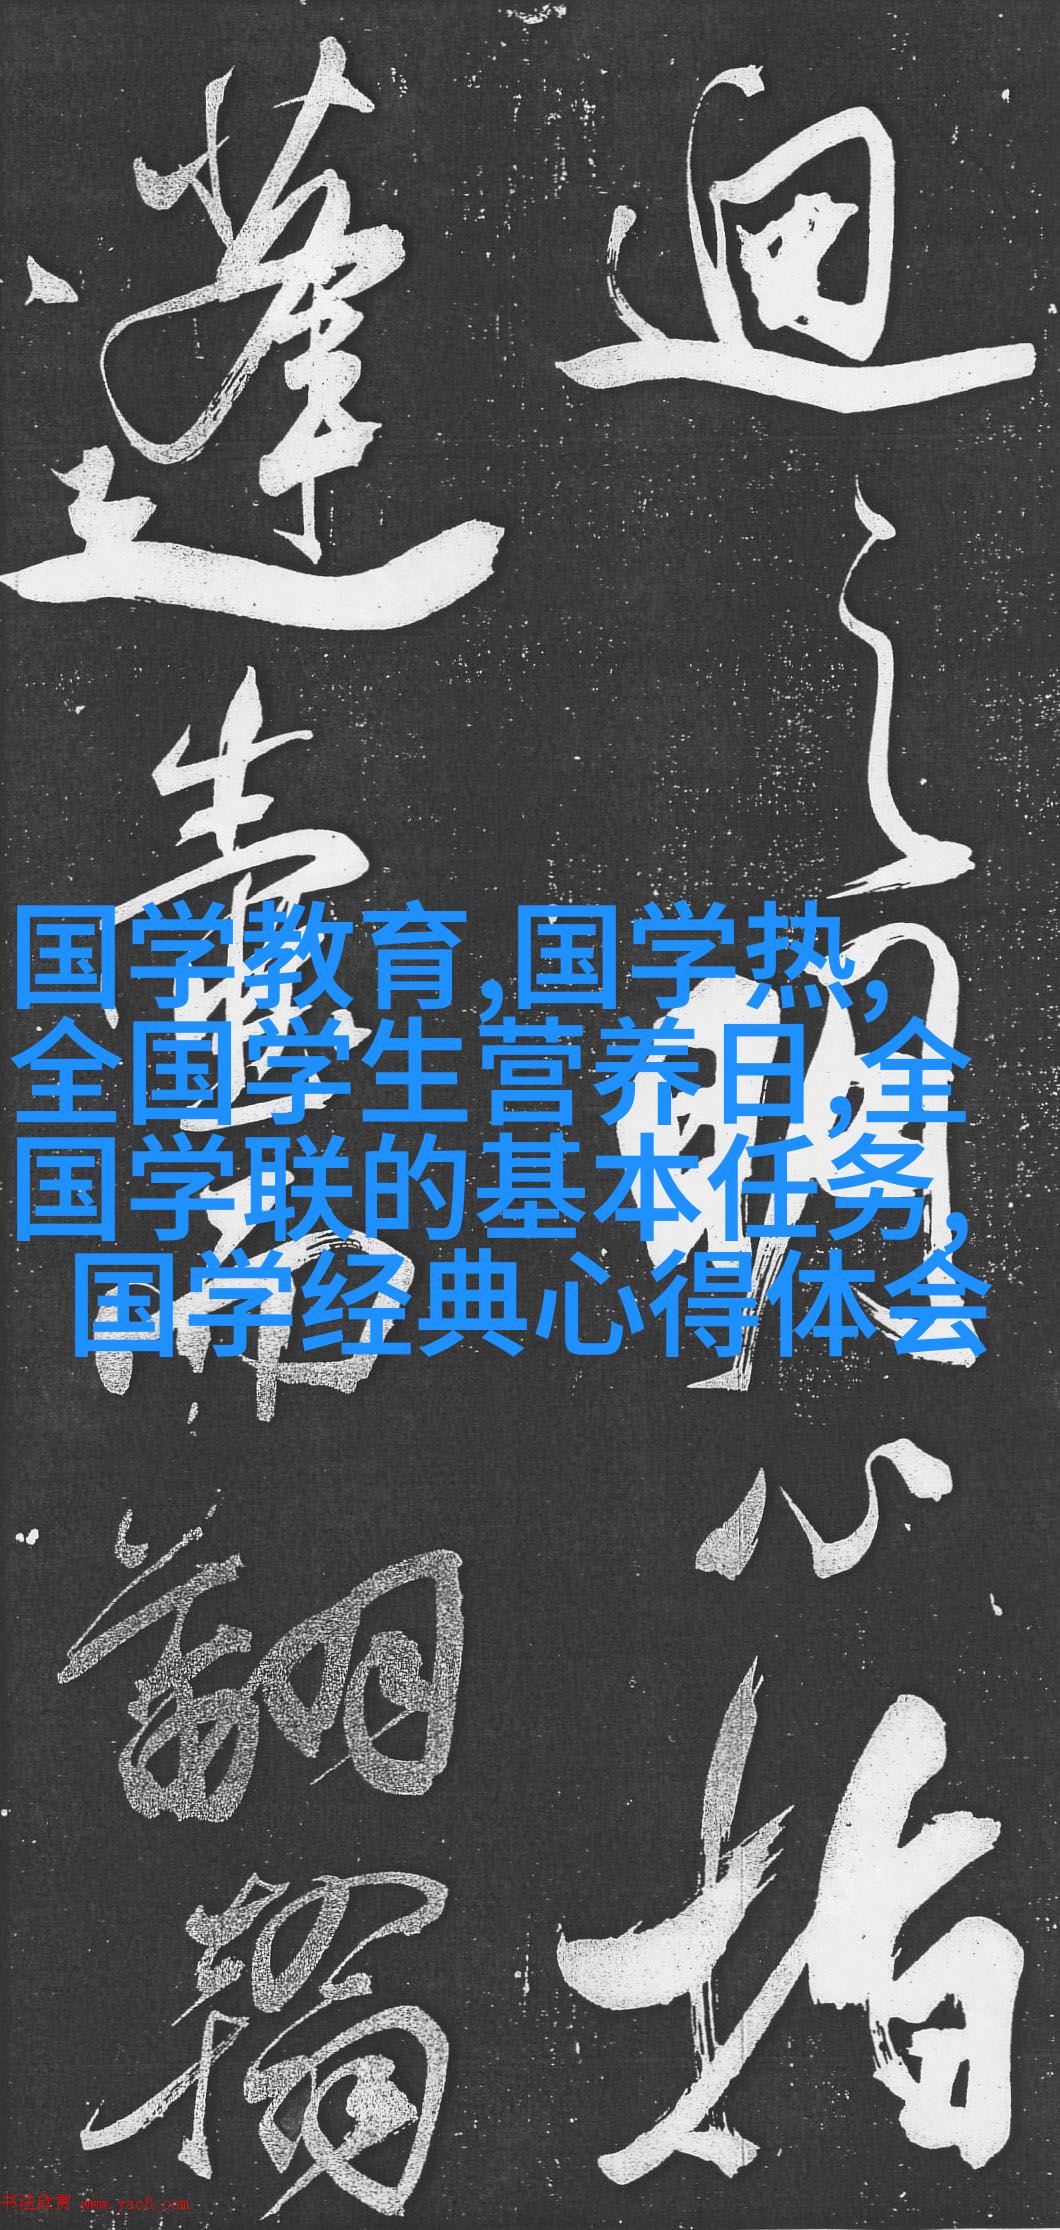 迴
之
朗
心
指
蓬
壶
而
翻
翰
国学教育,国学热,
全国学生营养日,全
国学联的基本任务,
国学经典心得体会
书法欣赏 www.yac8.com